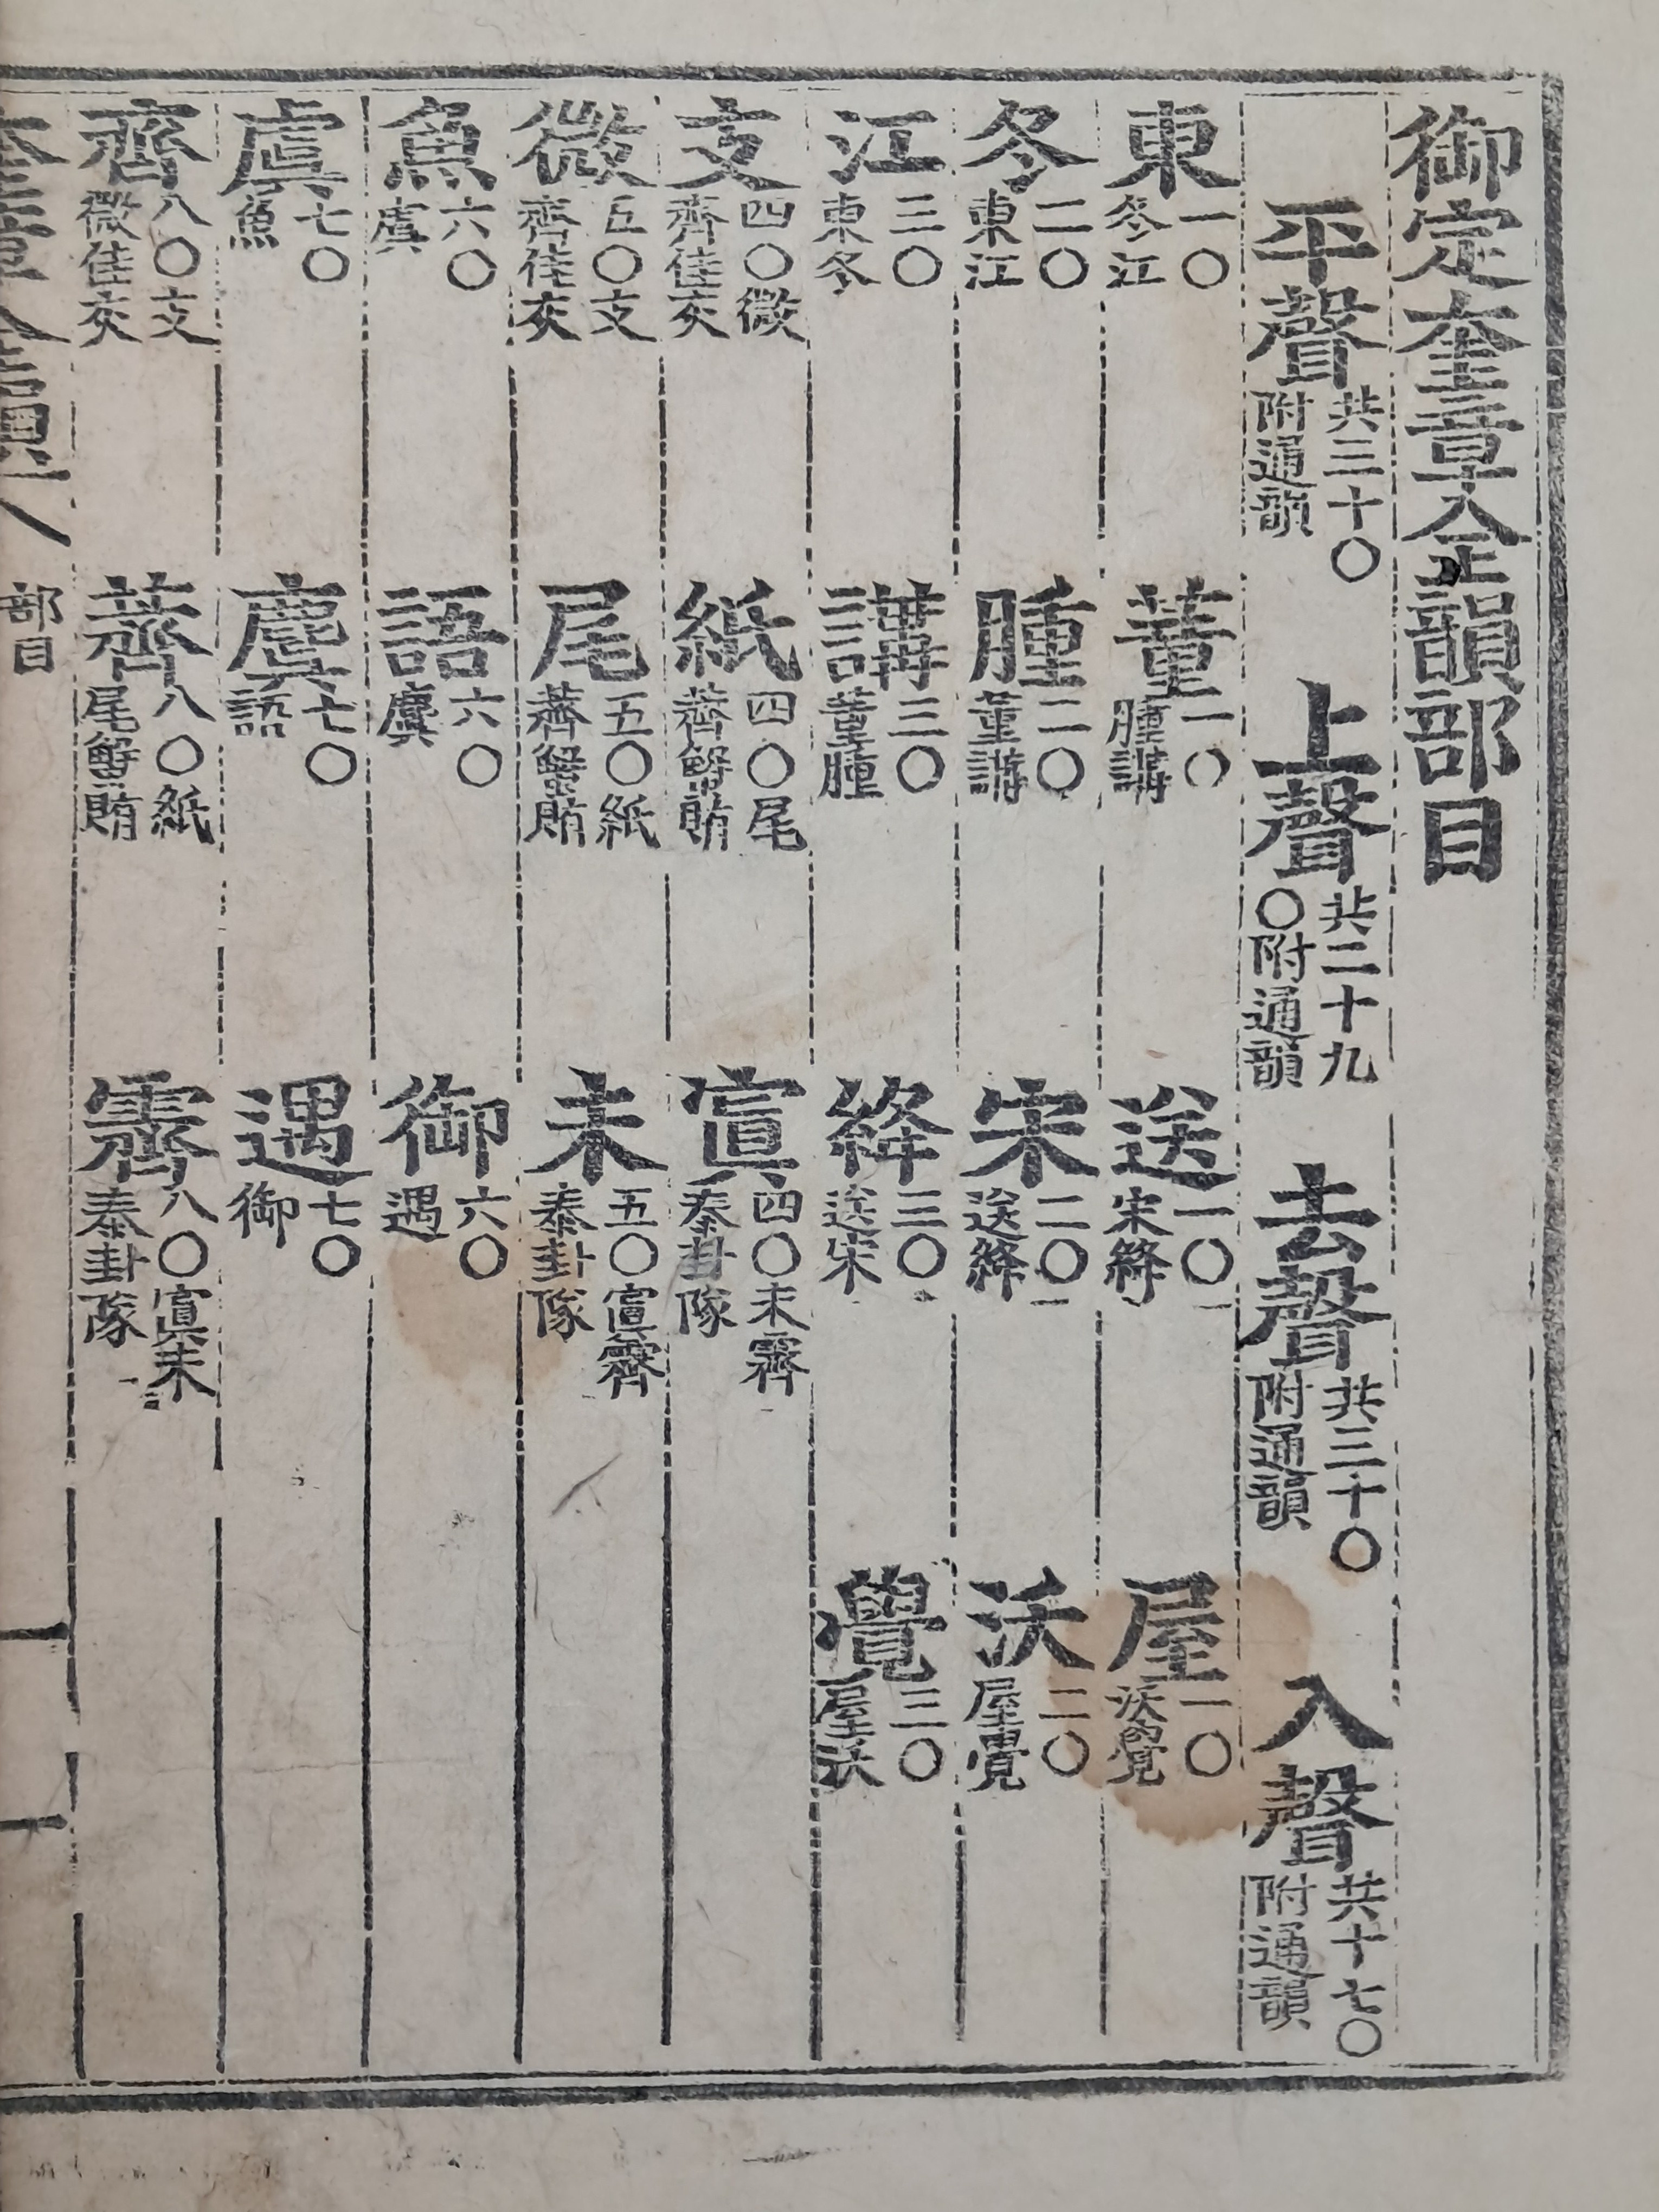 御定奎章全韻部目
平聲共三十〇附通韻 上聲共二十九〇附通韻 去聲共三十〇附通韻 入聲共十七〇附通韻
東一〇冬江 董一〇腫講 送一〇宋絳 屋一〇沃覺
冬二〇東江 腫二〇董講 宋二〇送絳 沃二〇屋覺
江三〇東冬 講三〇董腫 絳三〇送宋 覺三〇屋沃
支四〇微齊佳灰 紙四〇尾薺蟹賄 寘四〇未霽泰卦隊
微五〇支齊佳灰 尾五〇紙薺蟹賄 未五〇寘霽泰卦隊
魚六〇虞 語六〇麌 御六〇遇
虞七〇魚 麌七〇語 遇七〇御
齊八〇支微佳灰 薺八〇紙尾蟹賄 霽八〇寘未泰卦隊
奎章全韻 部目